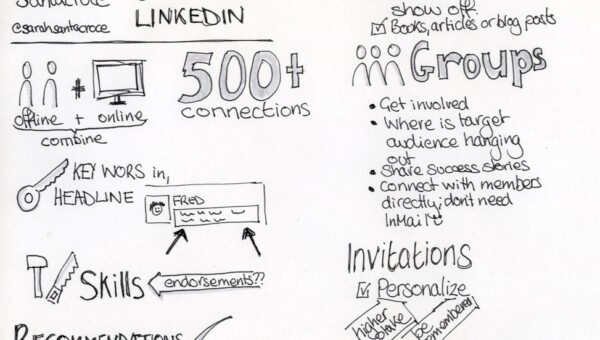 LINKEDIN
@sarahsantacroce
offline + online
combine
500+
connections
KEY WORS in,
HEADLINE
FRED
Skills
endorsements??
RECOMMENDATIONS
show off.
Books, articles or blog posts
Groups
Get involved
Where is target
audience hanging
out
Share success stories
connect with members
directly; don't need
InMail
Invitations
Personalize
higher
be
remembered